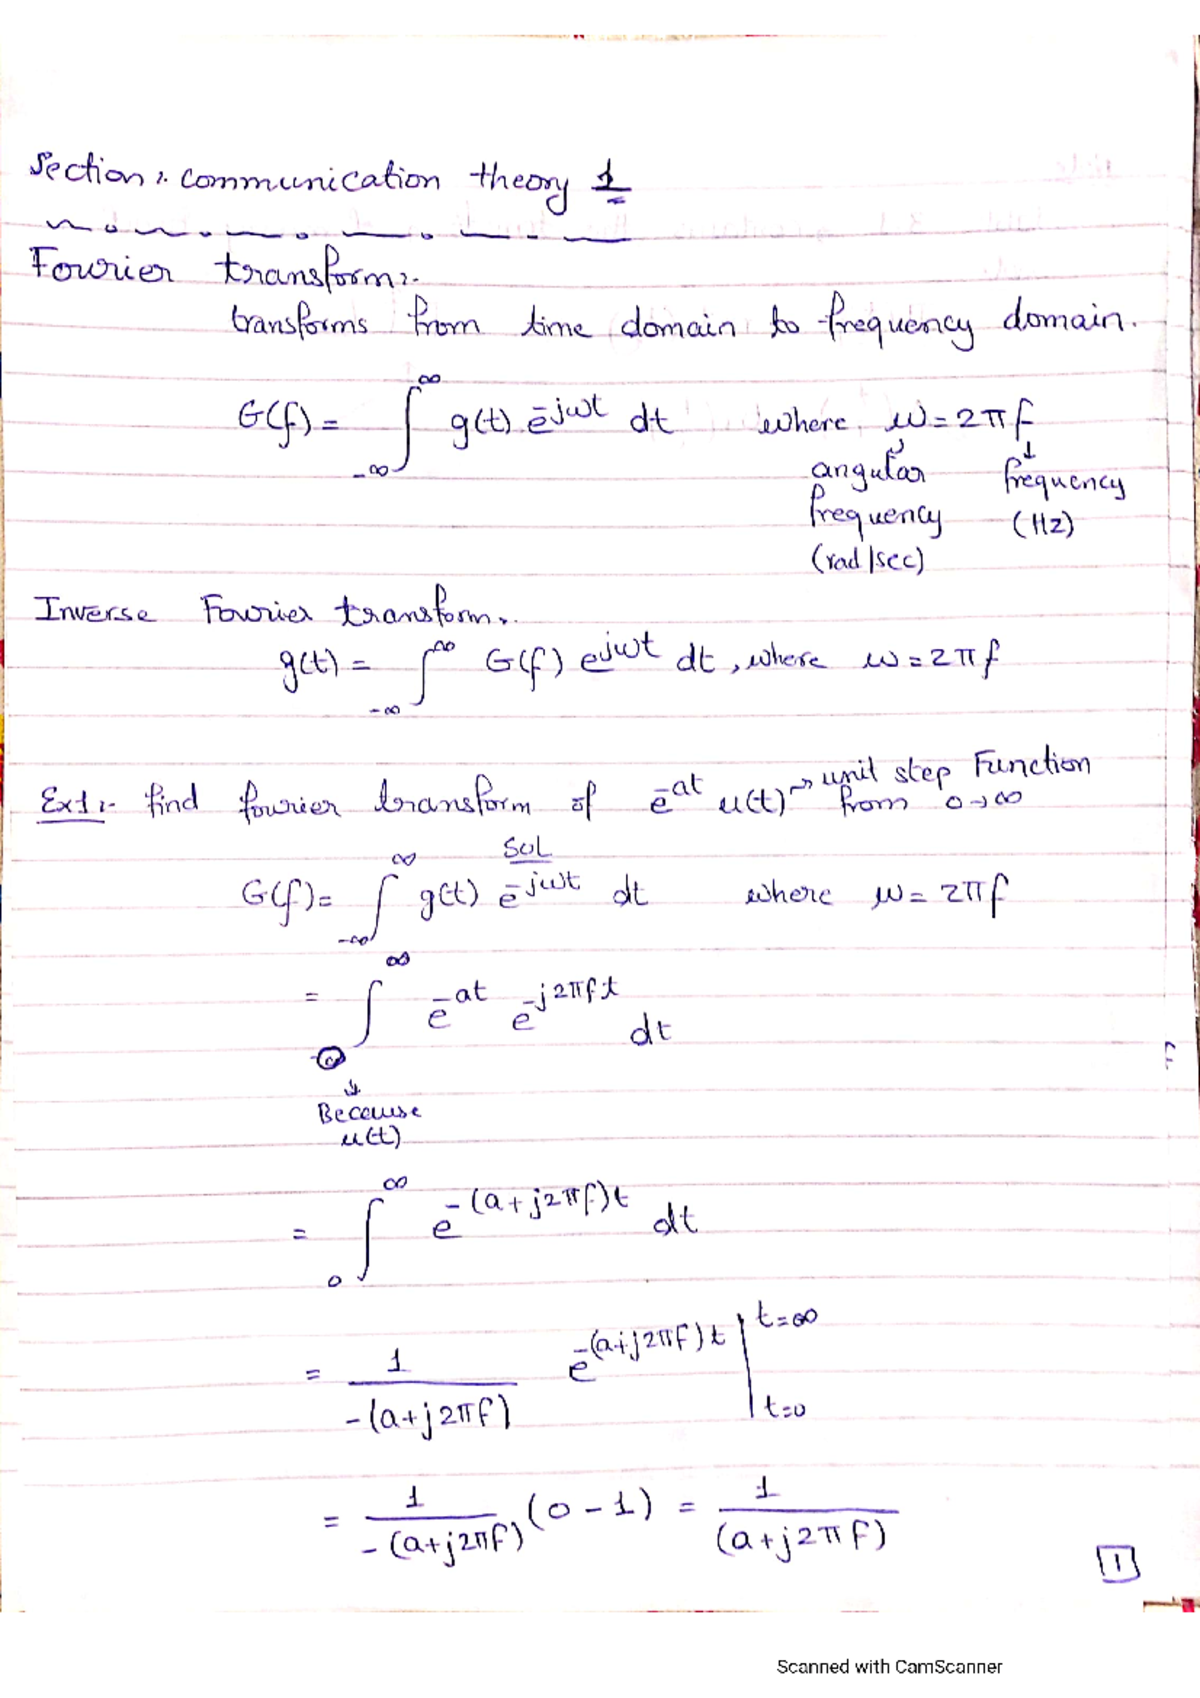 Section:. communication theory 1
Fourier transform:.
transforms from time domain to frequency domain.
G(f) = ∫_{-∞}^{∞} g(t) e^{-jωt} dt where ω = 2πf
angular frequency
frequency (Hz)
(rad/sec)
Inverse Fourier transform.
g(t) = ∫_{-∞}^{∞} G(f) e^{jωt} dt, where ω = 2πf
Ex1:. find fourier transform of e^{-at} u(t) → unit step Function
from 0→∞
Sol
G(f) = ∫_{-∞}^{∞} g(t) e^{-jωt} dt where ω = 2πf
= ∫_{0}^{∞} e^{-at} e^{-j2πft} dt
↓
Because
u(t)
= ∫_{0}^{∞} e^{-(a+j2πf)t} dt
= 1/-(a+j2πf) e^{-(a+j2πf)t} |_{t=0}^{t=∞}
= 1/-(a+j2πf) (0-1) = 1/(a+j2πf)
1
Scanned with CamScanner